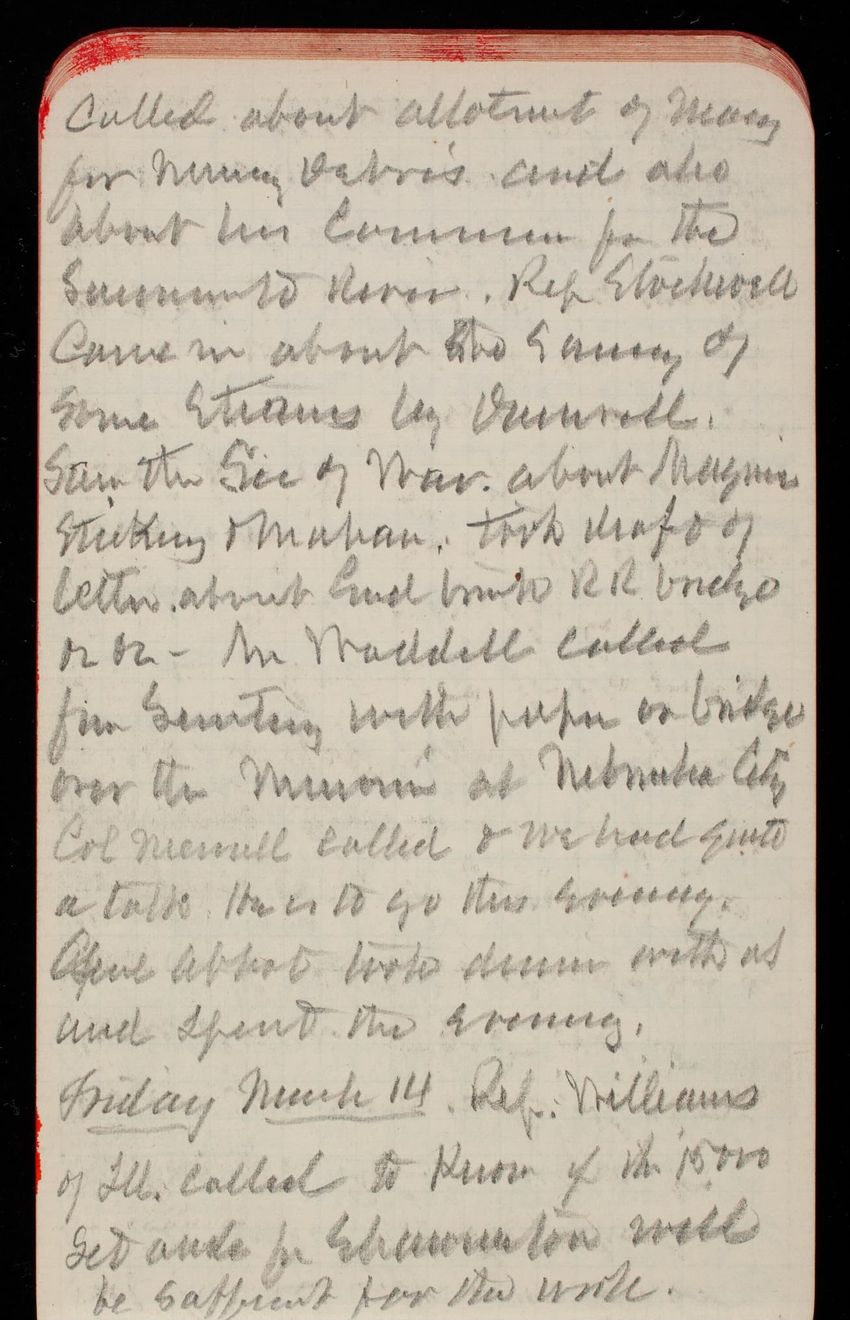 Called about allotment of Money
for Mining Debris and also
about his Commn for the
Sacramento River. Rep Stockwell
Came in about the
Some Steams by
Saw the Sec of War. about
Stickney & Mahan. took draft of
letter about Grand RR bridge
on Or - Mr Waddell called
from Secretary with paper on bridge
over the Missouri at Nebraska City
Col Merrill called & we had quite
a talk. He is to go this evening.
Genl Abbot took dinner with us
and spent the evening.
Friday March 14. Rep. Williams
of Ill. called to Know if the 15000
Set aside for Shawneetown will
be Sufficient for the work.